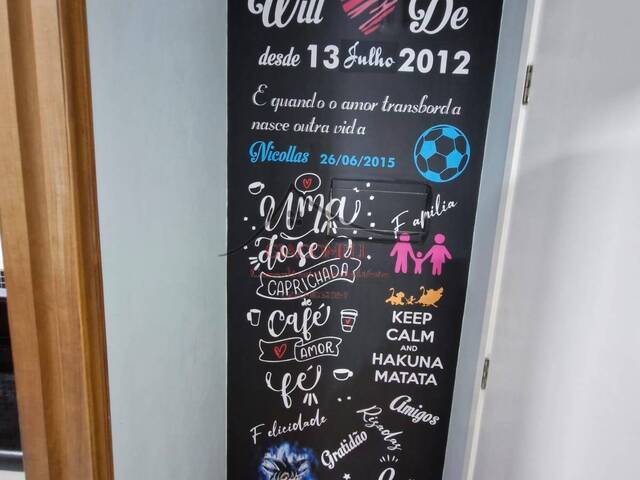 Will De
desde 13 Julho 2012
E quando o amor transborda
nasce outra vida
Nicollas 26/06/2015
Uma
dose
CAPRICHADA
de
Café
AMOR
fé
Família
KEEP
CALM
AND
HAKUNA
MATATA
Amigos
Risadas
Felicidade
Gratidão